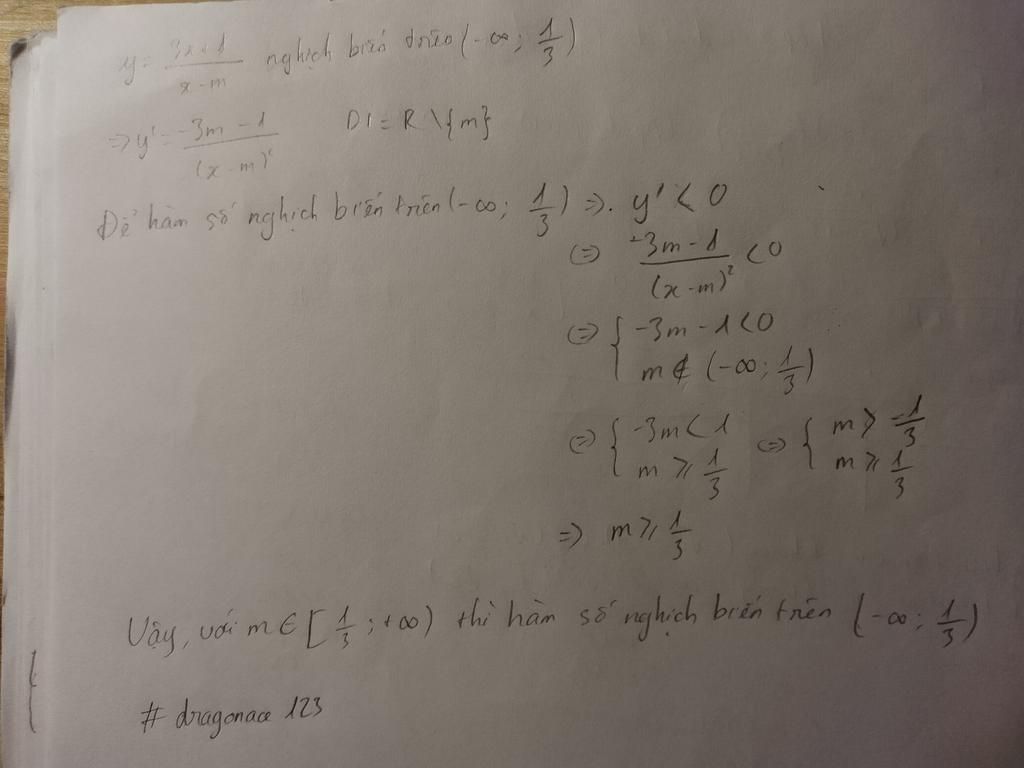 y = \frac{3x+1}{x-m} nghịch biến trên (-∞; \frac{1}{3})
=> y' = \frac{-3m-1}{(x-m)^2} D1 = R \ {m}
Để hàm số nghịch biến trên (-∞; \frac{1}{3}) => y' < 0
(=) \frac{-3m-1}{(x-m)^2} < 0
(=) { -3m - 1 < 0
m ∉ (-∞; \frac{1}{3})
(=) { -3m < 1
m ⩾ \frac{1}{3}
(=) { m > \frac{-1}{3}
m ⩾ \frac{1}{3}
=) m ⩾ \frac{1}{3}
Vậy, với m ∈ [\frac{1}{3}; +∞) thì hàm số nghịch biến trên (-∞; \frac{1}{3})
# dragonace 123